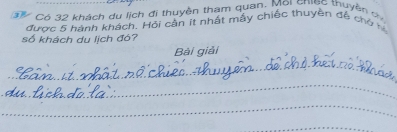 3 Có 32 khách du lịch đi thuyền tham quan. Mỗi chiếc thuyền chở
được 5 hành khách. Hỏi cần ít nhất mấy chiếc thuyền để chở
số khách du lịch đó?
Bài giải
Cần ít nhất số chiếc thuyền để chở hết số khách
du lịch đó là: